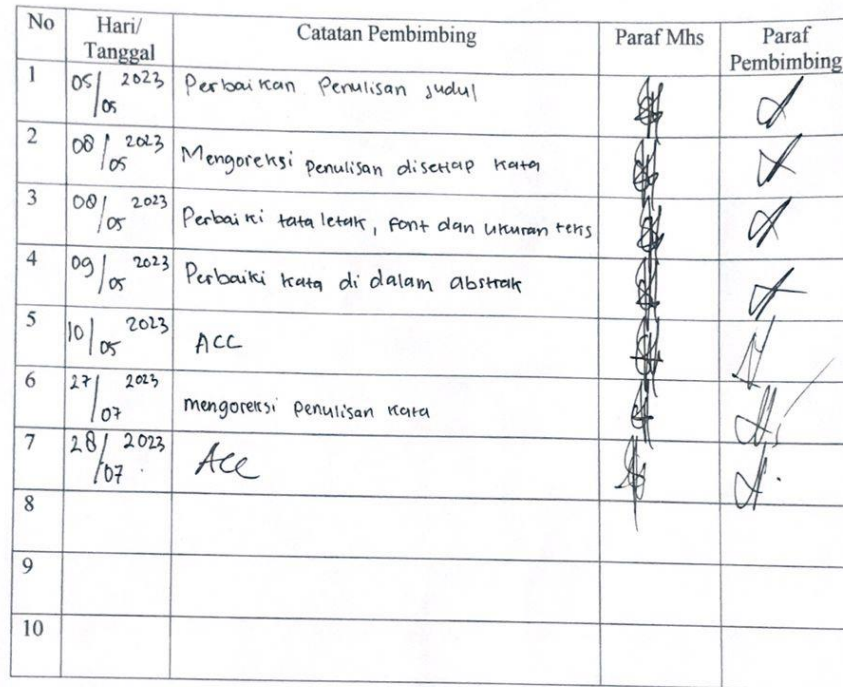 No Hari/ Tanggal Catatan Pembimbing Paraf Mhs Paraf Pembimbing
1 05/05 2023 Perbaikan Penulisan Judul
2 08/05 2023 Mengoreksi Penulisan disetiap kata
3 08/05 2023 Perbaiki tata letak, font dan ukuran teks
4 09/05 2023 Perbaiki kata di dalam abstrak
5 10/05 2023 ACC
6 27/07 2023 mengoreksi Penulisan kata
7 28/07 2023 Acc
8
9
10